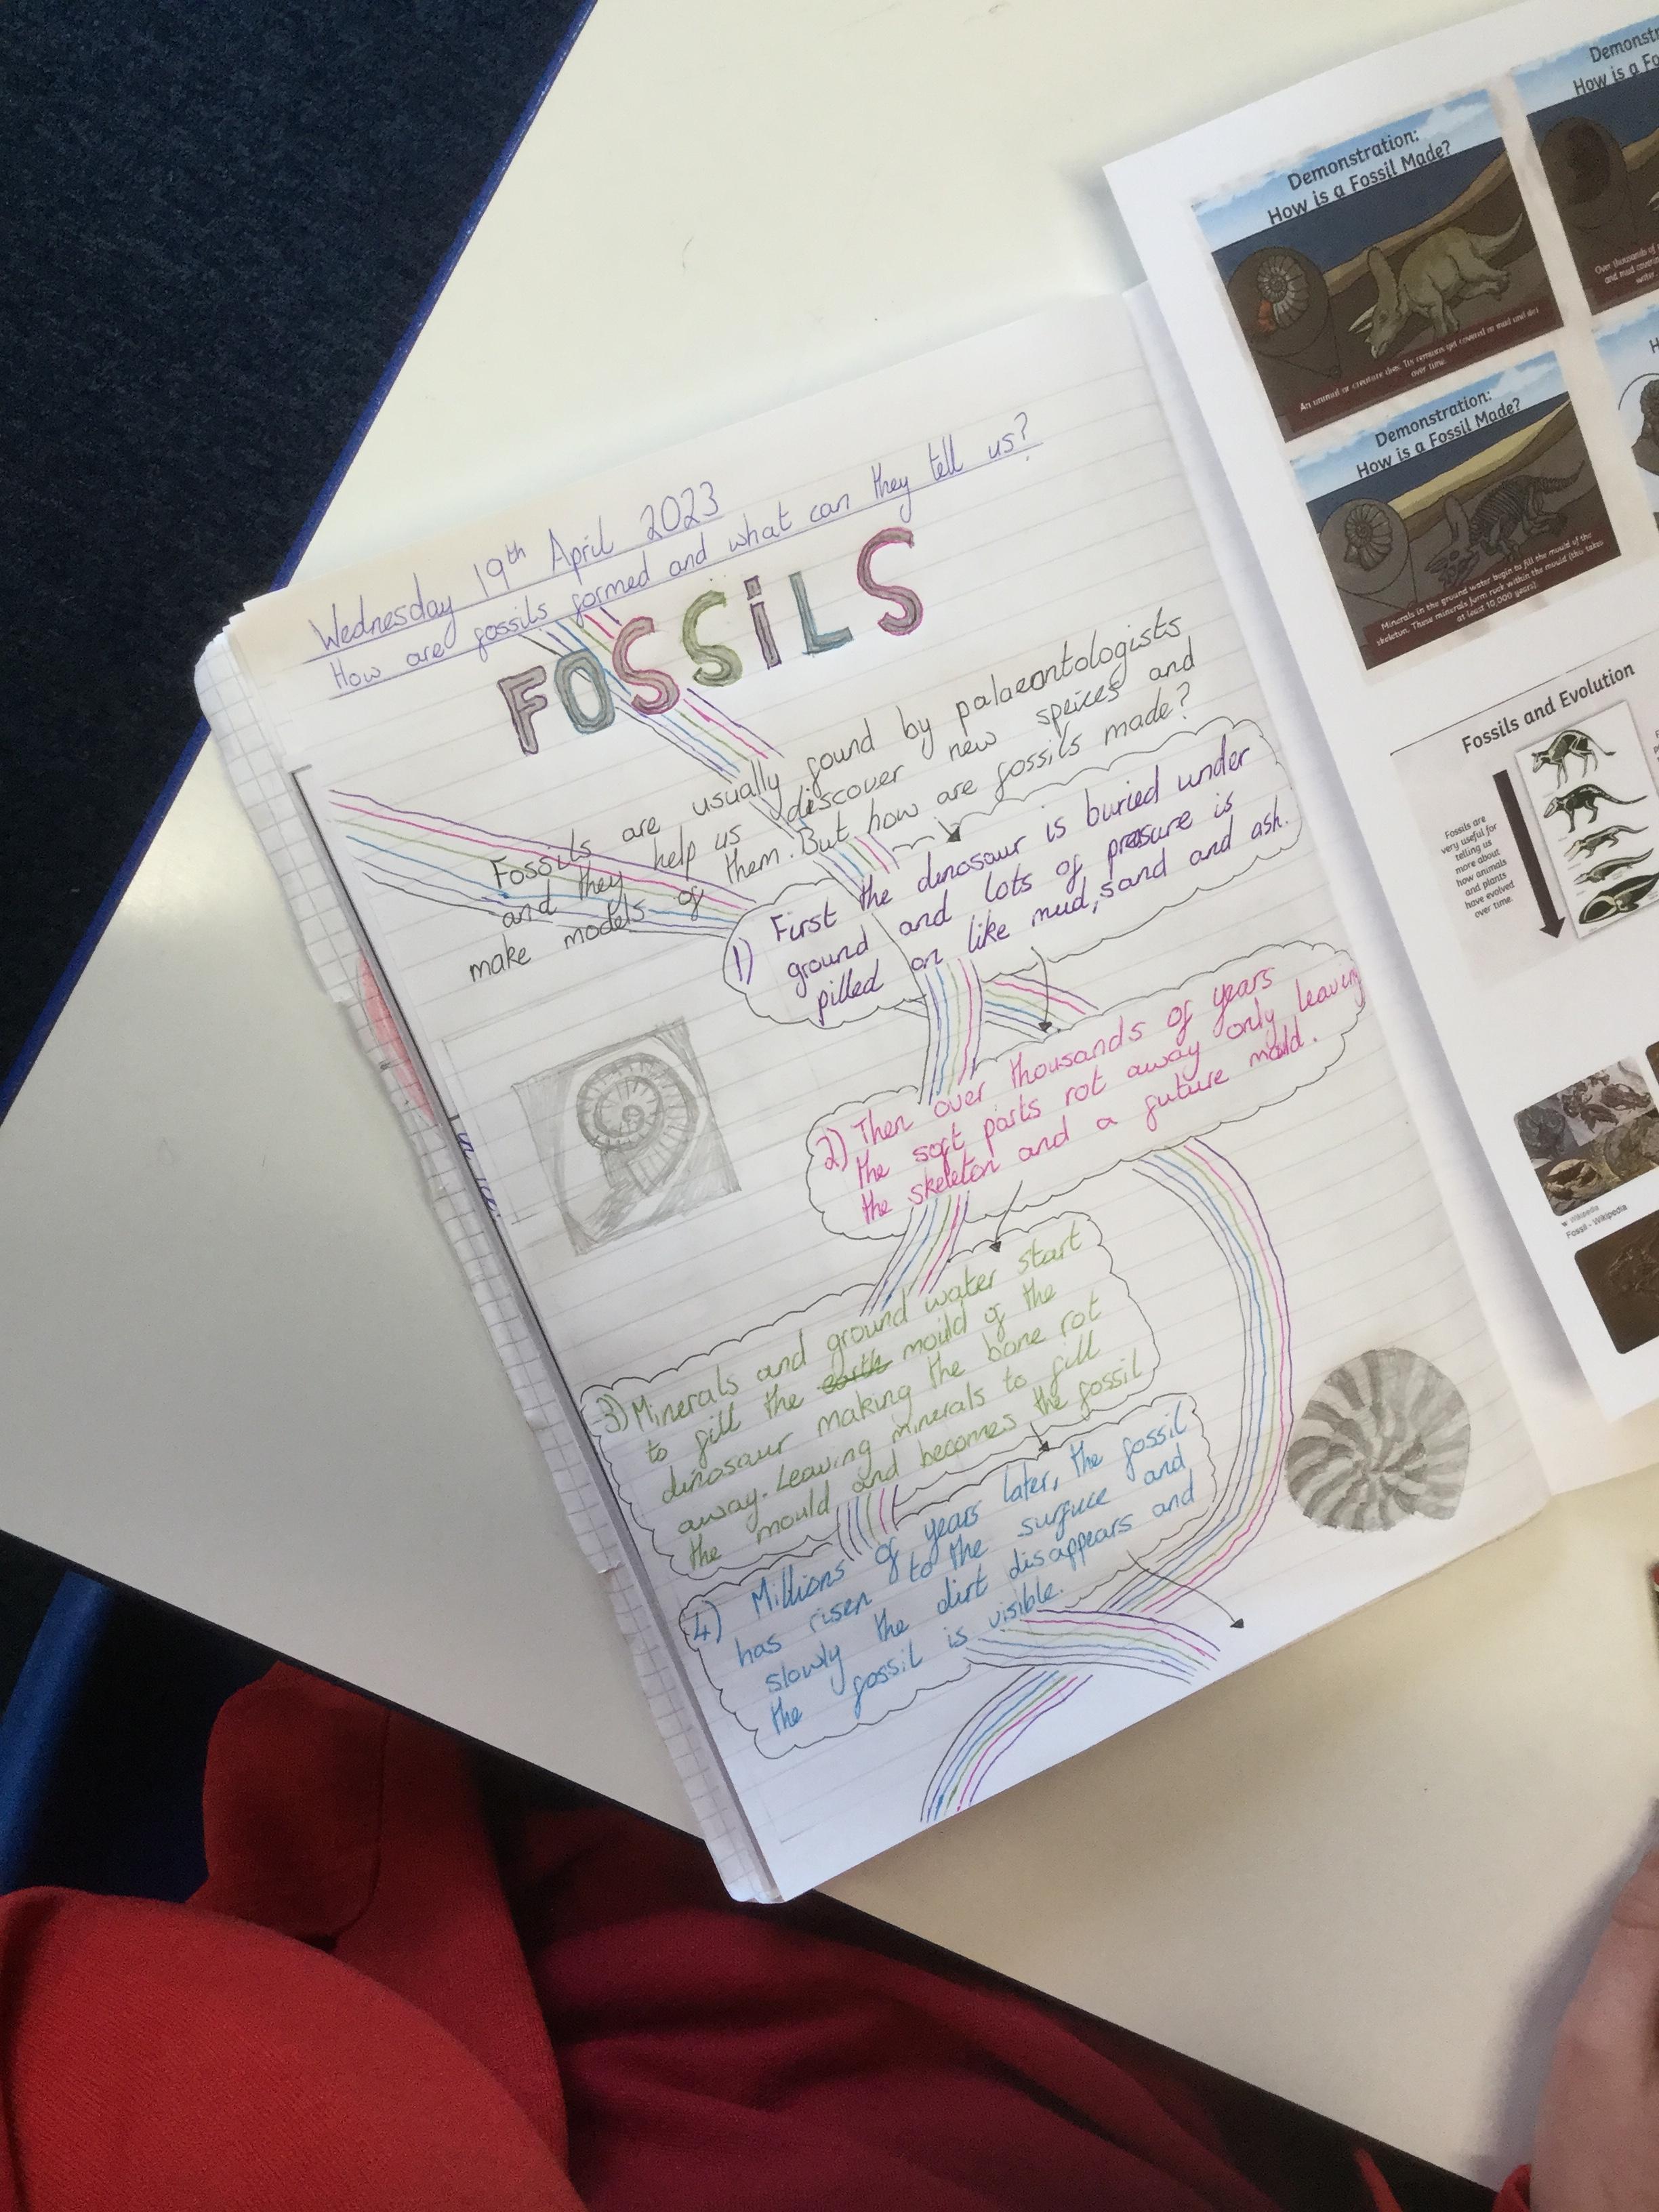 Wednesday 19th April 2023
How are fossils formed and what can they tell us?
FOSSiLS
Fossils are usually found by palaeontologists
and they help us discover new speices and
make models of them. But how are fossils made?
1) First the dinosaur is buried under
ground and lots of presure is
pilled on like mud, sand and ash.
2) Then over thousands of years
the soft parts rot away only leaving
the skeleton and a future mould.
3) Minerals and ground water start
to fill the earth mould of the
dinosaur making the bone rot
away. Leaving minerals to fill
the mould and becomes the fossil
4) Millions of years later, the fossil
has risen to the surface and
slowly the dirt disappears and
the fossil is visible.
Demonstration:
How is a Fossil Made?
An animal or creature dies. Its remains get covered in mud and dirt
over time.
How is a Fo
Over thousands of
and mud
water
Demonstration:
How is a Fossil Made?
Minerals in the ground water begin to fill the mould of the
skeleton. These minerals form rock within the mould (this takes
at least 10,000 years)
H
Fossils and Evolution
Fossils are
very useful for
telling us
more about
how animals
and plants
have evolved
over time.
Wikipedia
Fossil - Wikipedia